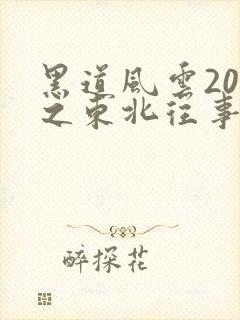 黑道風雲20
之東北往事
醉探花